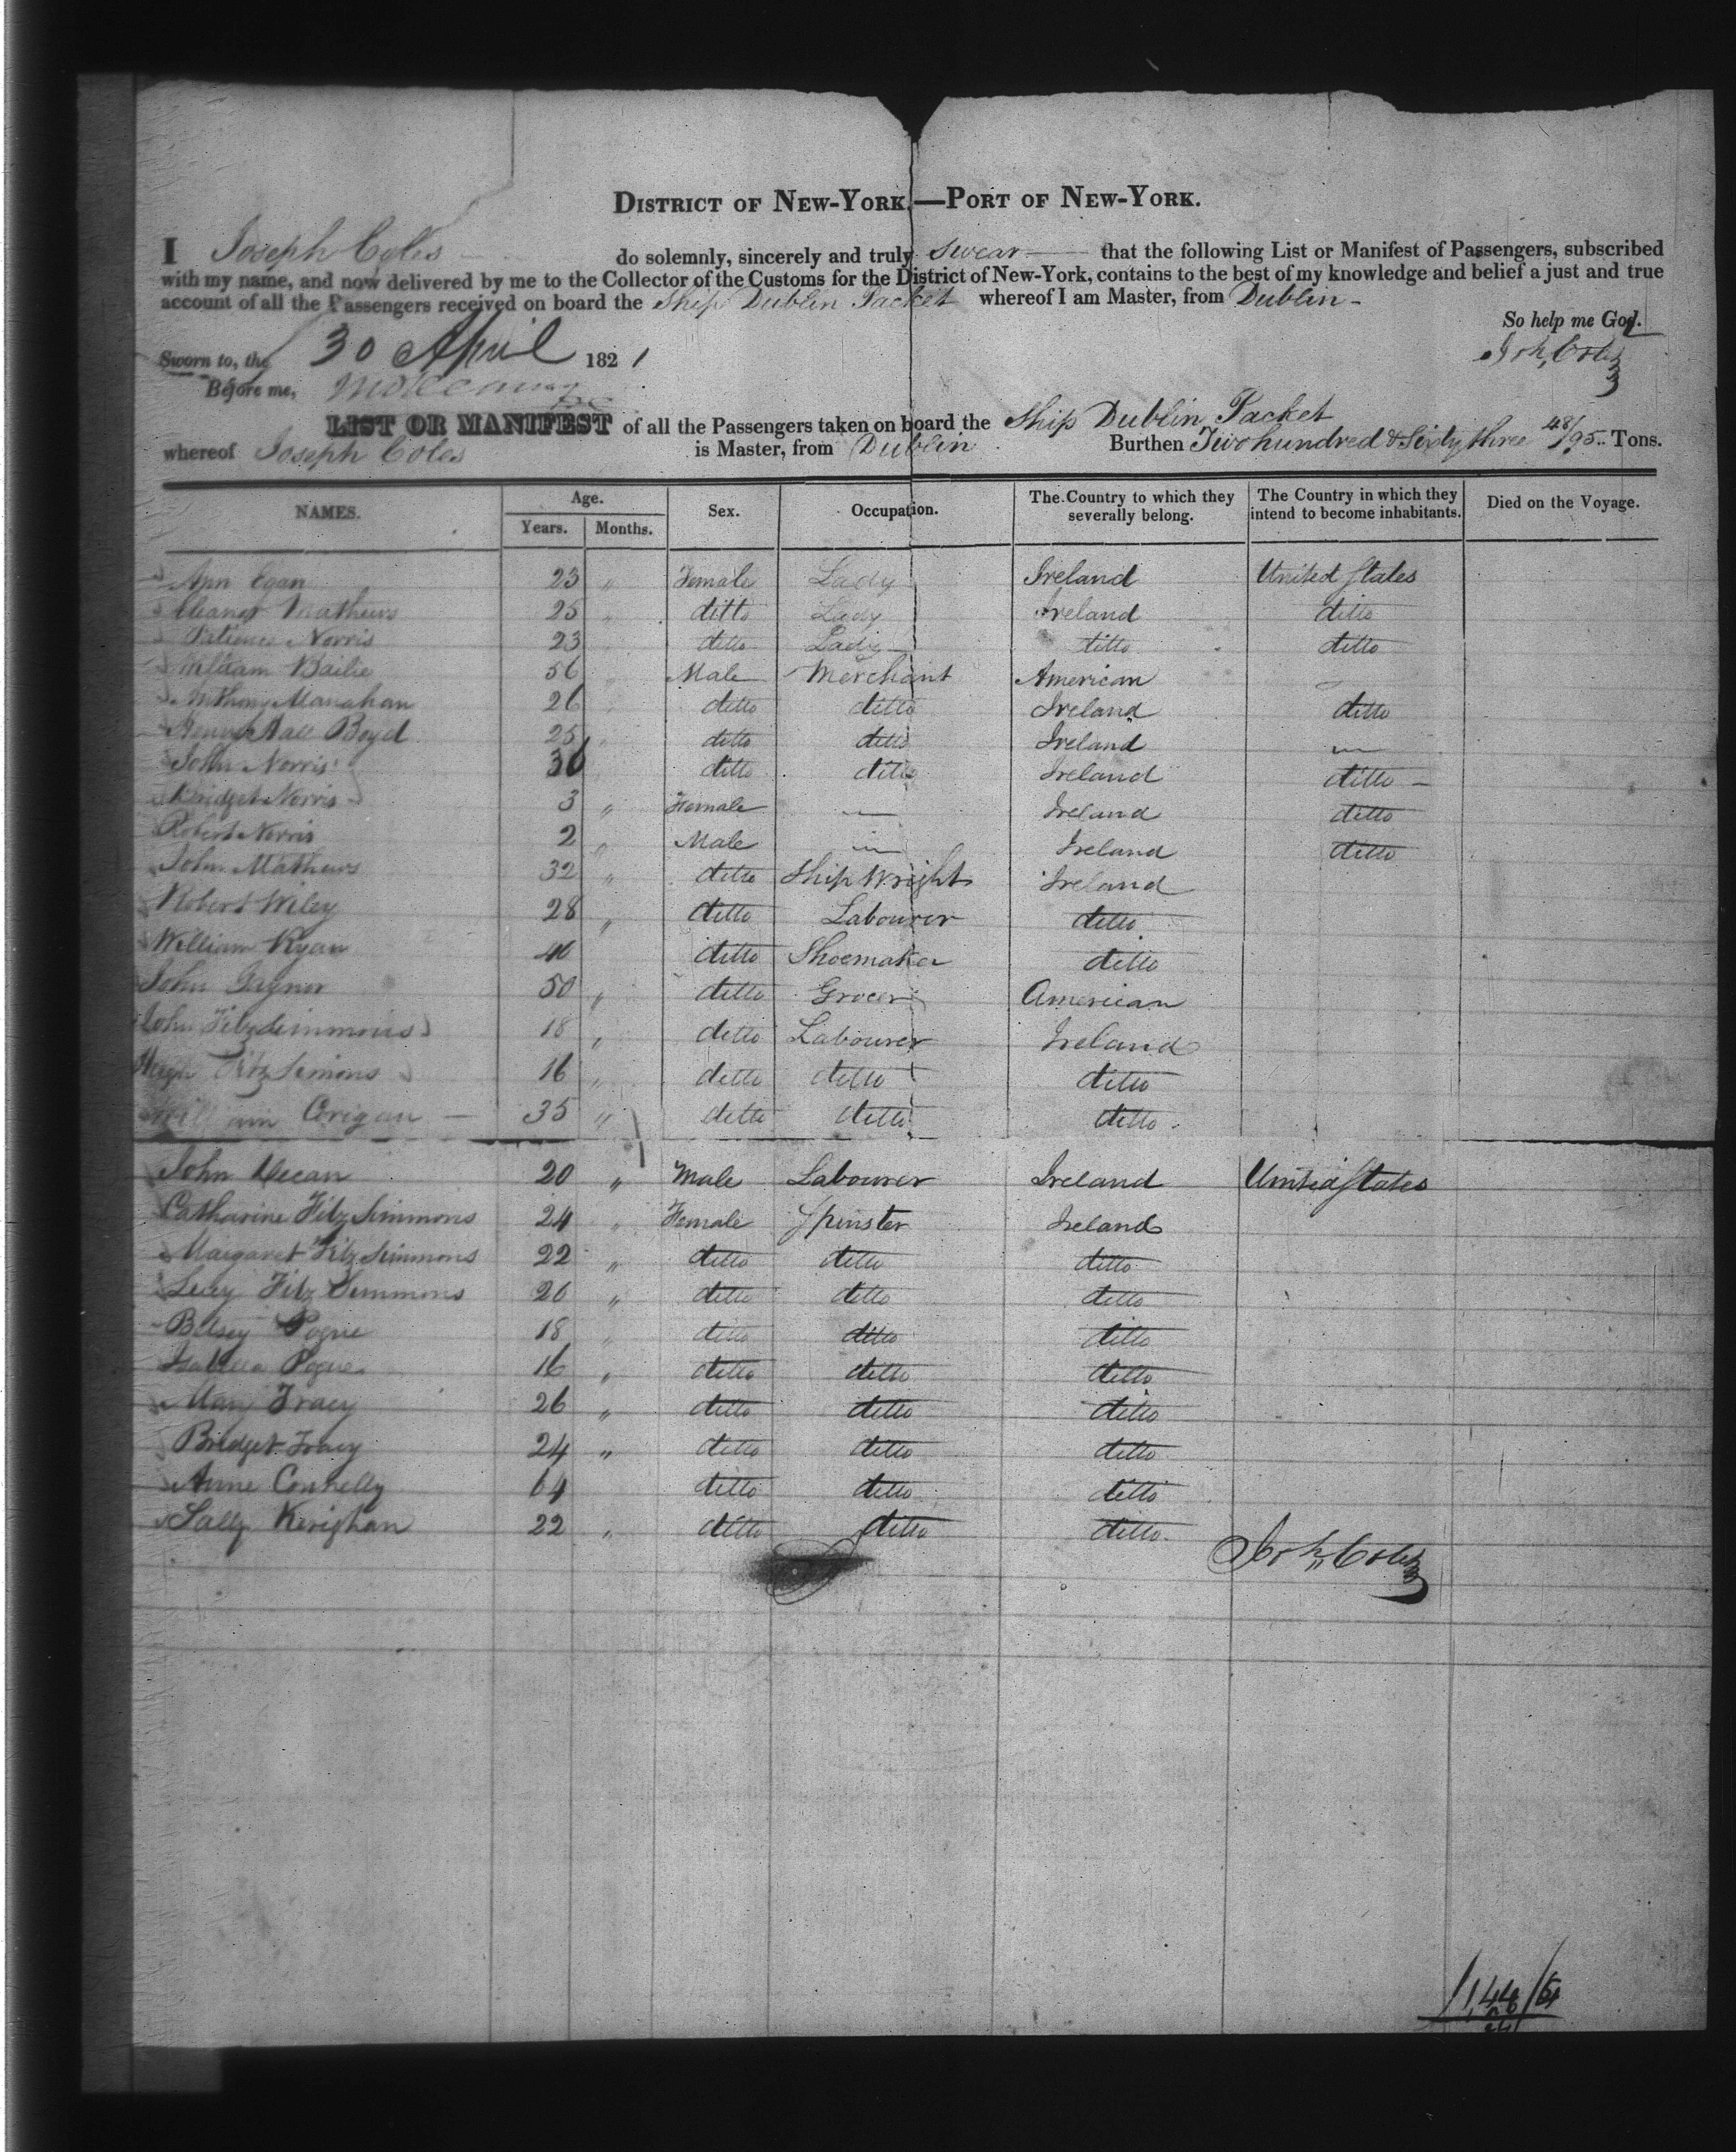 DISTRICT OF NEW-YORK,—PORT OF NEW-YORK.
I Joseph Coles do solemnly, sincerely and truly swear that the following List or Manifest of Passengers, subscribed
with my name, and now delivered by me to the Collector of the Customs for the District of New-York, contains to the best of my knowledge and belief a just and true
account of all the Passengers received on board the Ship Dublin Packet whereof I am Master, from Dublin
So help me God.
Sworn to, the 30 April 1821 Josh Coles
Before me,
LIST OR MANIFEST of all the Passengers taken on board the Ship Dublin Packet
whereof Joseph Coles is Master, from Dublin Burthen Two hundred & Sixty three 48/95 Tons.
NAMES. Age. Years. Months. Sex. Occupation. The Country to which they severally belong. The Country in which they intend to become inhabitants. Died on the Voyage.
Ann Egan 23 " Female Lady Ireland United States
Eleanor Mathews 25 " ditto Lady Ireland ditto
Patience Norris 23 ditto Lady ditto ditto
William Bailie 56 Male Merchant American
Anthony Manahan 26 ditto ditto Ireland ditto
Henry Hall Boyd 25 ditto ditto Ireland —
John Norris 36 ditto ditto Ireland ditto —
Bridget Norris 3 " Female — Ireland ditto
Robert Norris 2 " Male — Ireland ditto
John Mathews 32 " ditto Ship Wright Ireland
Robert Wiley 28 " ditto Labourer ditto
William Ryan 40 ditto Shoemaker ditto
John 50 " ditto Grocer American
John Fitzsimmons 18 " ditto Labourer Ireland
Hugh Fitz Simons 16 " ditto ditto ditto
William Corigan — 35 " ditto ditto ditto
John 20 " Male Labourer Ireland United States
Catharine Fitz Simmons 24 " Female Spinster Ireland
Margaret Fitz Simmons 22 " ditto ditto ditto
Fitz Simmons 20 " ditto ditto ditto
Betsey Pogue 18 " ditto ditto ditto
Isabella Pogue 16 " ditto ditto ditto
Mary Tracy 26 " ditto ditto ditto
Bridget Tracy 24 " ditto ditto ditto
Anne Connelly 64 ditto ditto ditto
Sally Kerighan 22 " ditto ditto ditto
Josh Coles